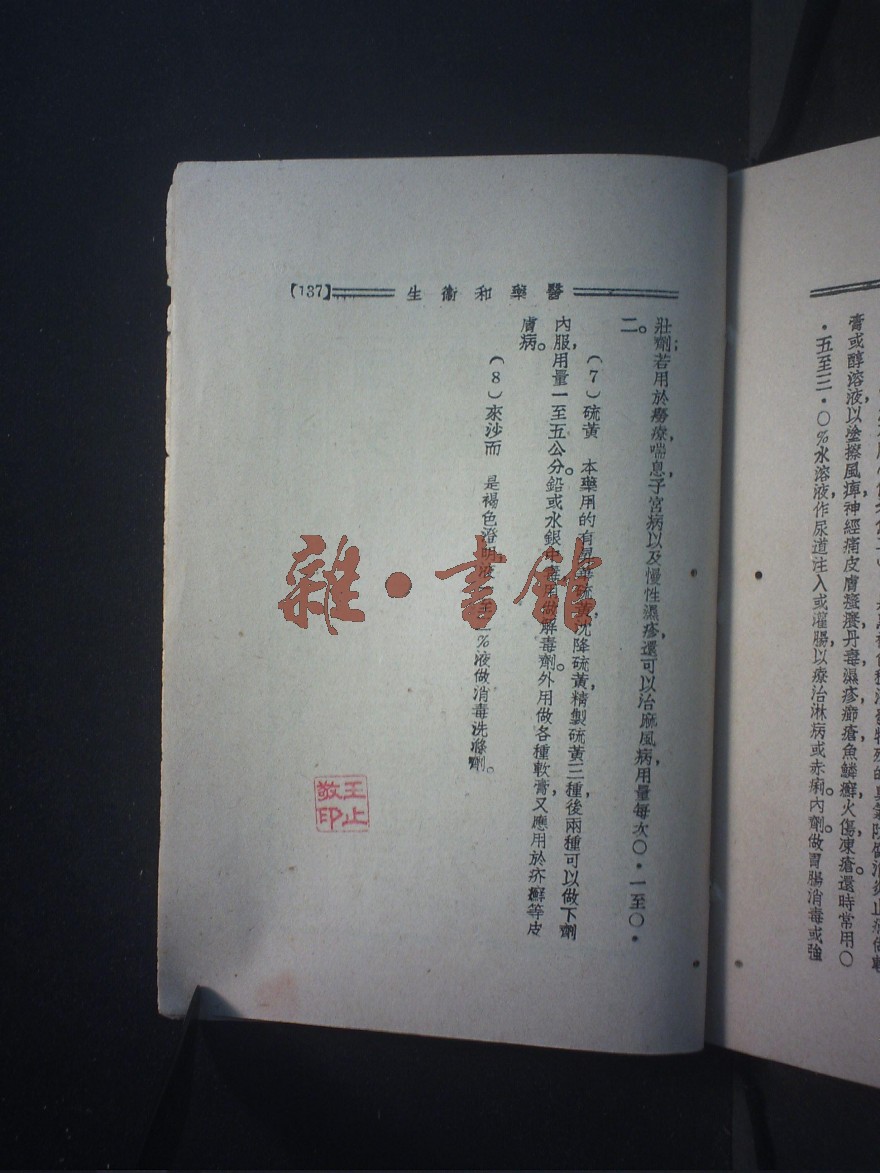 【137】 生衞和藥醫
壯劑;若用於癆療,喘息,子宮病以及慢性濕疹,還可以治麻風病,用量每次〇・一至〇・
二。
(7)硫黃 本藥用的有昇華硫黃,沈降硫黃,精製硫黃三種,後兩種可以做下劑
內服,用量一至五公分。鉛或水銀中毒用做解毒劑。外用做各種軟膏,又應用於疥癬等皮
膚病。
(8)來沙而 是褐色澄明液 %液做消毒洗滌劑。
王止
敬印
雜・書館
膏或醇溶液,以塗擦風痺,神經痛,皮膚癢,丹毒,濕疹,癤瘡,魚鱗癬,火傷,凍瘡。還時常用〇
・五至三・〇%水溶液,作尿道注入或灌腸,以療治淋病或赤痢。內劑做胃腸消毒或強